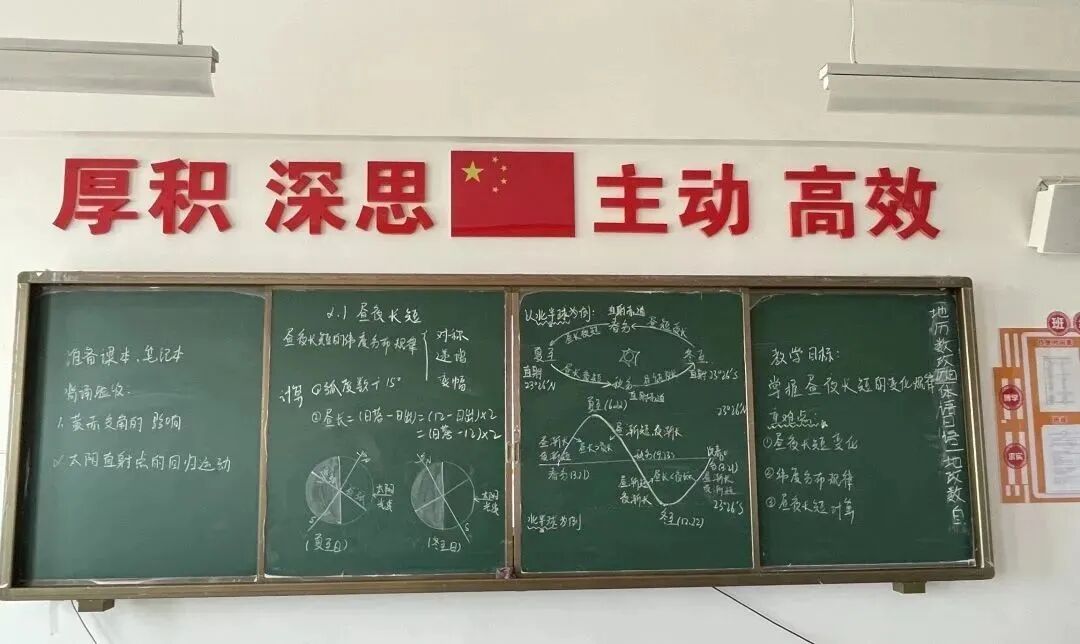 厚积 深思 主动 高效
准备课本、笔记本
背诵验收:
1. 黄赤交角的影响
2. 太阳直射点的回归运动
2.1 昼夜长短
昼夜长短的纬度分布规律
对称
递增
变幅
计算 ①弧度数÷15°
②昼长=(日落-日出)=(12-日出)×2
=(日落-12)×2
N
S
太阳光线
(夏至日)
N
S
太阳光线
(冬至日)
以北半球为例:
直射赤道
春分
昼短夜长
昼长夜短
夏至
直射
23°26'N
冬至
直射23°26'S
昼长夜短
秋分
昼短夜长
直射赤道
夏至(6.22)
23°26'N
昼渐短,夜渐长
昼渐长
夜渐短
昼长>夜长
秋分(9.23)
春分(3.21)
昼渐短
夜渐长
昼长<夜长
春分(3.21)
昼渐长
夜渐短
23°26'S
冬至(12.22)
北半球为例
教学目标:
掌握昼夜长短的变化规律
重难点:
①昼夜长短变化
②纬度分布规律
③昼夜长短计算
地历数政
体语自悟
地政数自
班
博学
求实